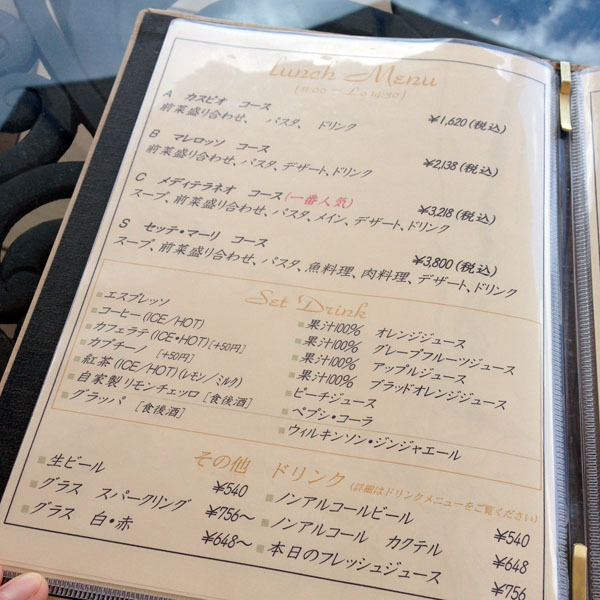 Lunch Menu
(11:00 ー L.o 14:30)
A カスピオ コース
前菜盛り合わせ、 パスタ、 ドリンク ¥1,620(税込)
B マレロッソ コース
前菜盛り合わせ、パスタ、デザート、ドリンク ¥2,138(税込)
C メディテラネオ コース(一番人気)
スープ、前菜盛り合わせ、パスタ、メイン、デザート、ドリンク ¥3,218(税込)
S セッテ・マーリ コース
スープ、前菜盛り合わせ、パスタ、魚料理、肉料理、デザート、ドリンク ¥3,800(税込)
Set Drink
エスプレッソ
コーヒー(ICE/HOT)
カフェラテ(ICE・HOT)[+50円]
カプチーノ [+50円]
紅茶(ICE/HOT)(レモン/ミルク)
自家製リモンチェッロ [食後酒]
グラッパ [食後酒]
果汁100% オレンジジュース
果汁100% グレープフルーツジュース
果汁100% アップルジュース
果汁100% ブラッドオレンジジュース
ピーチジュース
ペプシ・コーラ
ウィルキンソン・ジンジャエール
その他 ドリンク(詳細はドリンクメニューをご覧ください)
生ビール ¥540
グラス スパークリング ¥756~
グラス 白・赤 ¥648~
ノンアルコールビール ¥540
ノンアルコール カクテル ¥648
本日のフレッシュジュース ¥756